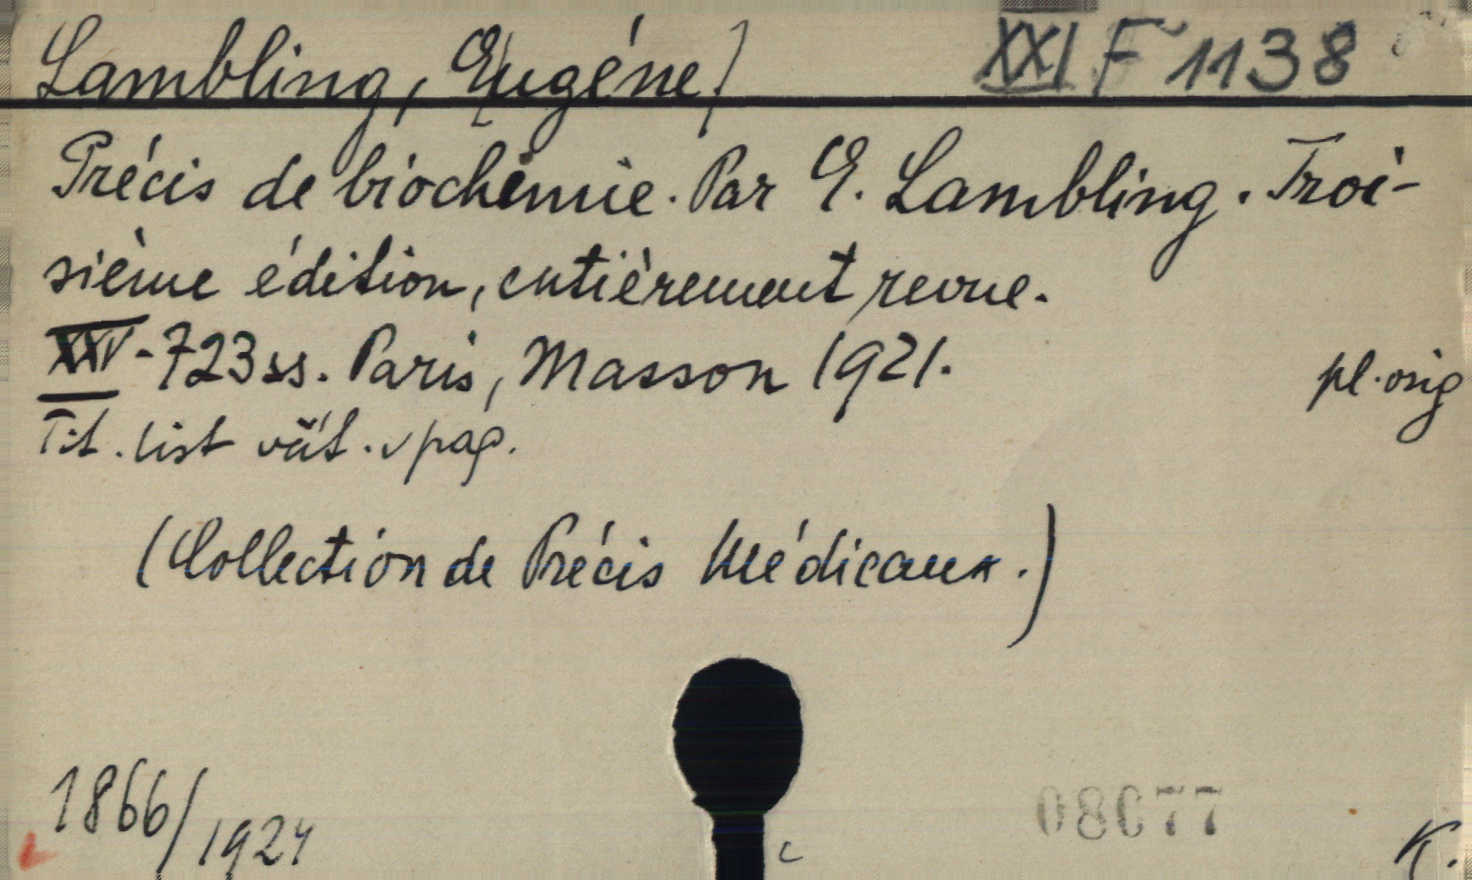 Lambling, E(ugéne) XXI F 1138
Précis de biochimie. Par E. Lambling. Troi-
sième édition, entièrement revue.
XXIV-723 ss. Paris, Masson 1921. pl. orig
Tit. list vät. v pag.
(Collection de Précis Médicaux.)
1866/1924
08077
c
K.